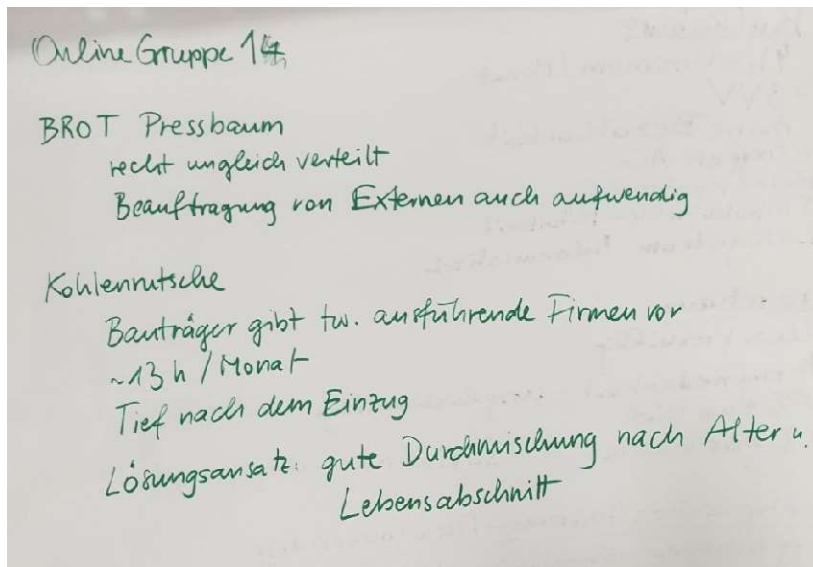 Online Gruppe 14
BROT Pressbaum
recht ungleich verteilt
Beauftragung von Externen auch aufwendig
Kohlenrutsche
Bauträger gibt tw. ausführende Firmen vor
~13 h / Monat
Tief nach dem Einzug
Lösungsansatz: gute Durchmischung nach Alter u.
Lebensabschnitt